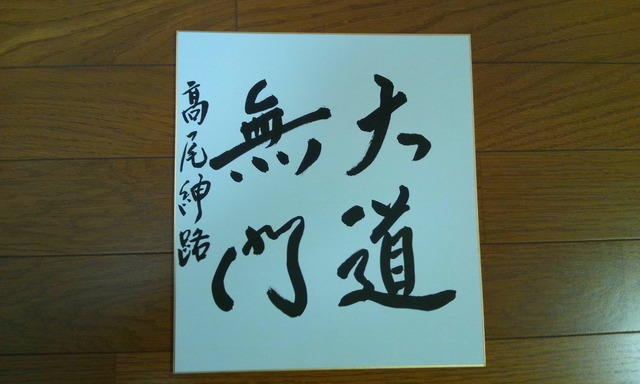 大道
無門
高尾紳路